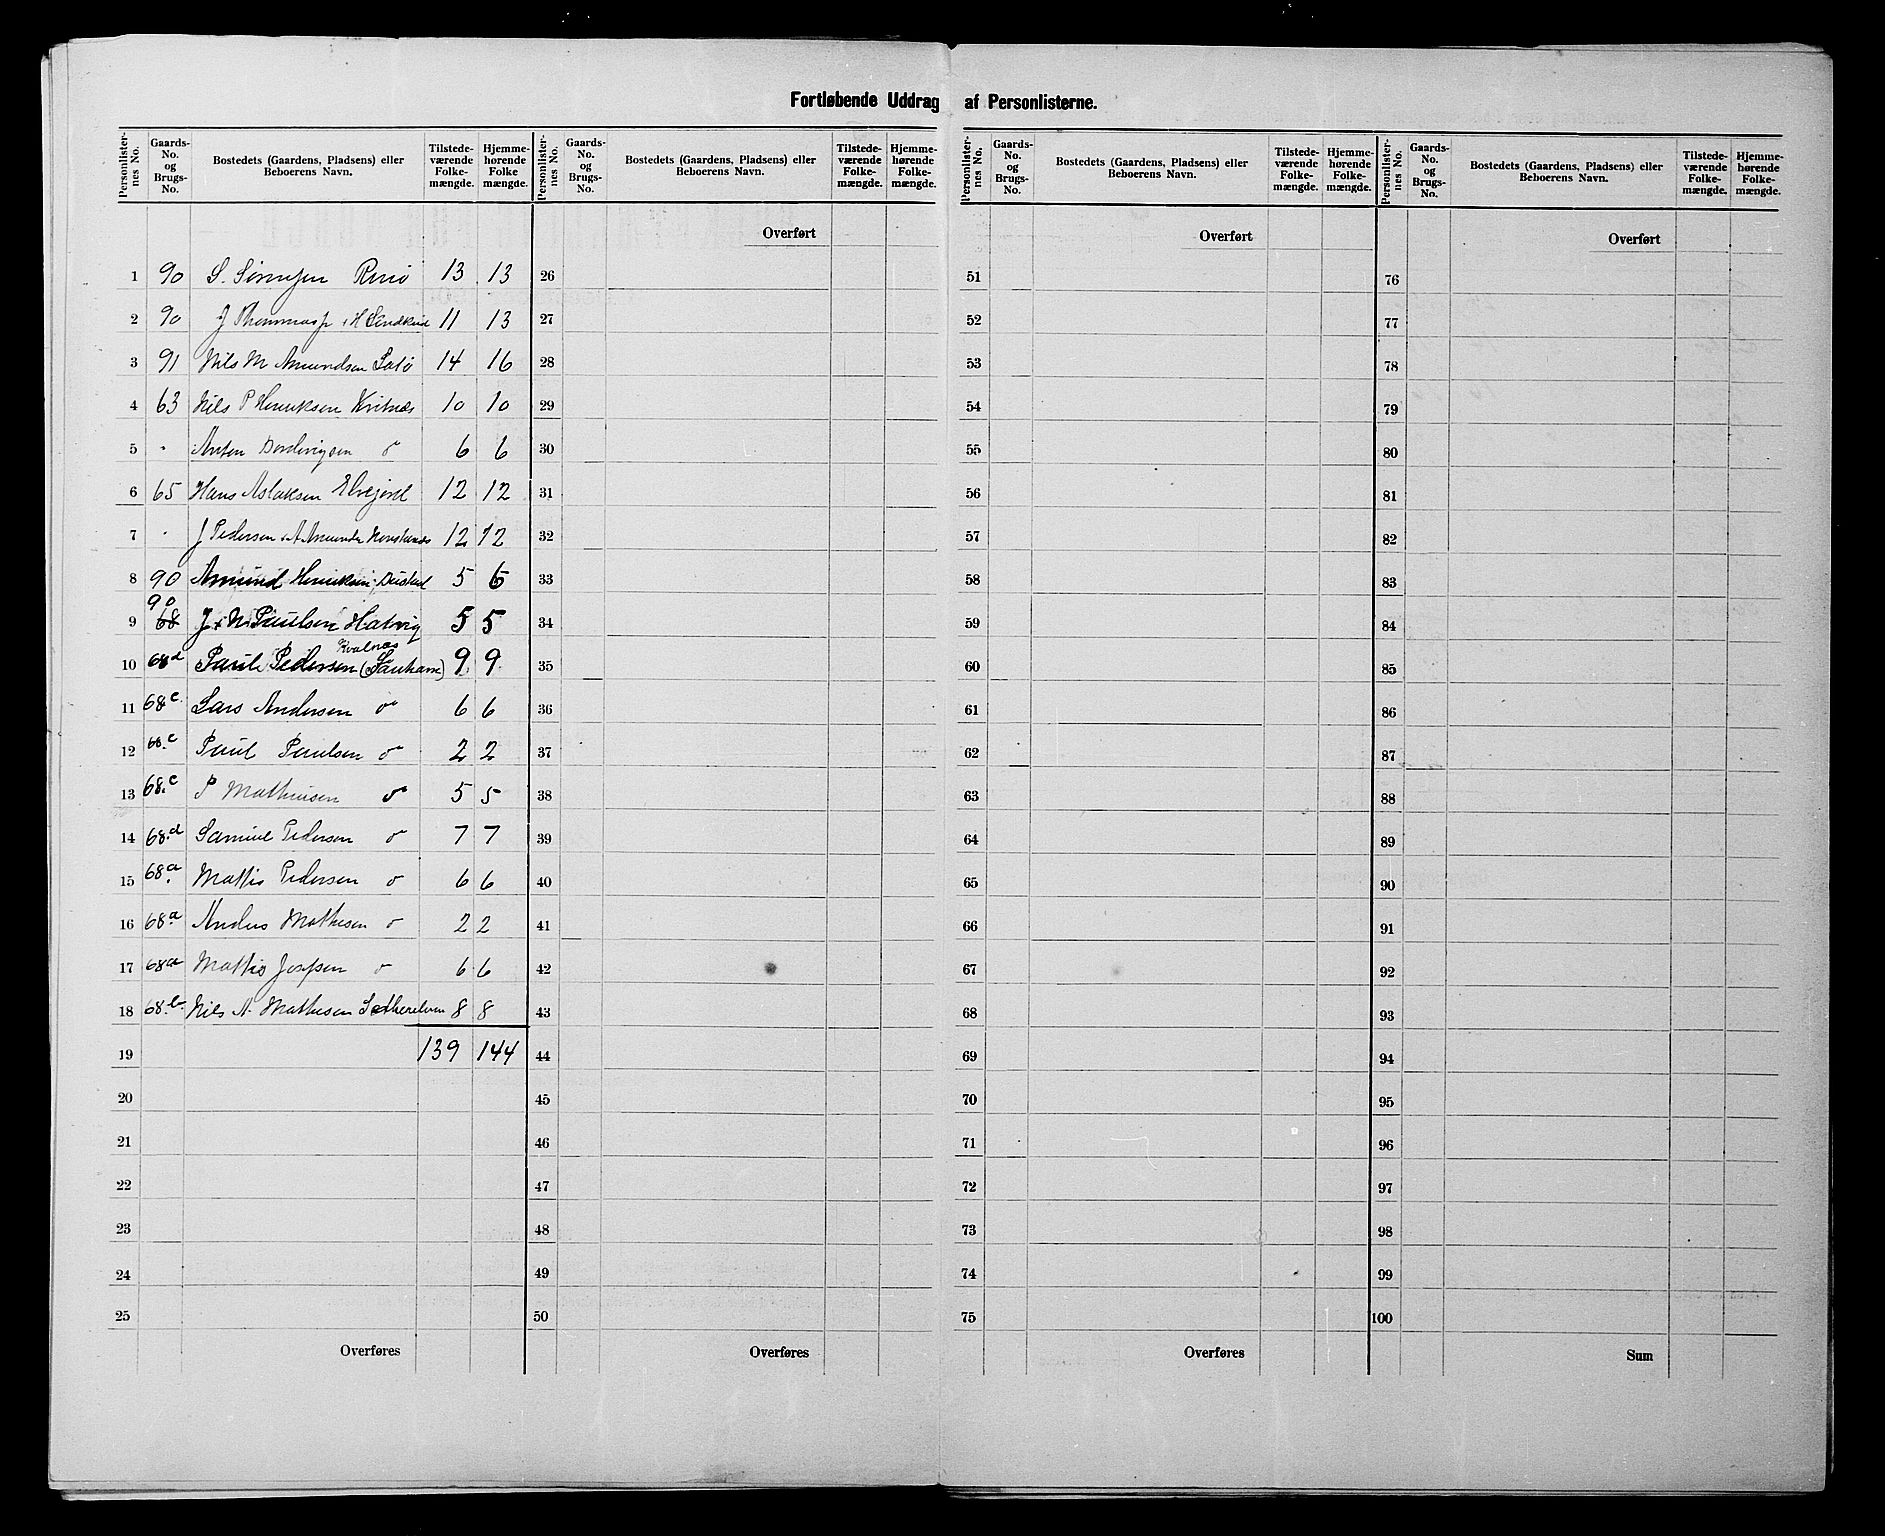 Fortløbende Uddrag af Personlisterne.
Personlister-nes No. Gaards-No. og Brugs-No. Bostedets (Gaardens, Pladsens) eller Beboerens Navn. Tilstede-værende Folke-mængde. Hjemme-hørende Folke mængde.
1 90 S. Sörensen Renö 13 13
2 90 J Thommasp & H. 11 13
3 91 Nils M Amundsen 14 16
4 63 Nils P Henriksen Kvitnæs 10 10
5 " Anton 6 6
6 65 Hans Aslaksen Elvejord 12 12
7 " J Pedersen & A Amunds 12 12
8 90 Amund Henriksen 5 6
90
9 68 J & N Paulsen Hatvig 5 5
Kvalnæs
10 68d Paul Pedersen (Sauhavn) 9 9
11 68c Lars Andersen do 6 6
12 68c Paul Paulsen do 2 2
13 68c P Mathisen do 5 5
14 68d Samuel Pedersen do 7 7
15 68a Mattis Pedersen do 6 6
16 68a Anders Mathisen do 2 2
17 68a Mattis Josefsen do 6 6
18 68b Nils A. Mathisen 8 8
19 139 144
20
21
22
23
24
25
Overføres
Personlister-nes No. Gaards-No. og Brugs-No. Bostedets (Gaardens, Pladsens) eller Beboerens Navn. Tilstede-værende Folke-mængde. Hjemme-hørende Folke-mængde.
Overført
26
27
28
29
30
31
32
33
34
35
36
37
38
39
40
41
42
43
44
45
46
47
48
49
50
Overføres
Personlister-nes No. Gaards-No. og Brugs-No. Bostedets (Gaardens, Pladsens) eller Beboerens Navn. Tilstede-værende Folke-mængde. Hjemme-hørende Folke-mængde.
Overført
51
52
53
54
55
56
57
58
59
60
61
62
63
64
65
66
67
68
69
70
71
72
73
74
75
Overføres
Personlister-nes No. Gaards-No. og Brugs-No. Bostedets (Gaardens, Pladsens) eller Beboerens Navn. Tilstede-værende Folke-mængde. Hjemme-hørende Folke-mængde.
Overført
76
77
78
79
80
81
82
83
84
85
86
87
88
89
90
91
92
93
94
95
96
97
98
99
100
Sum